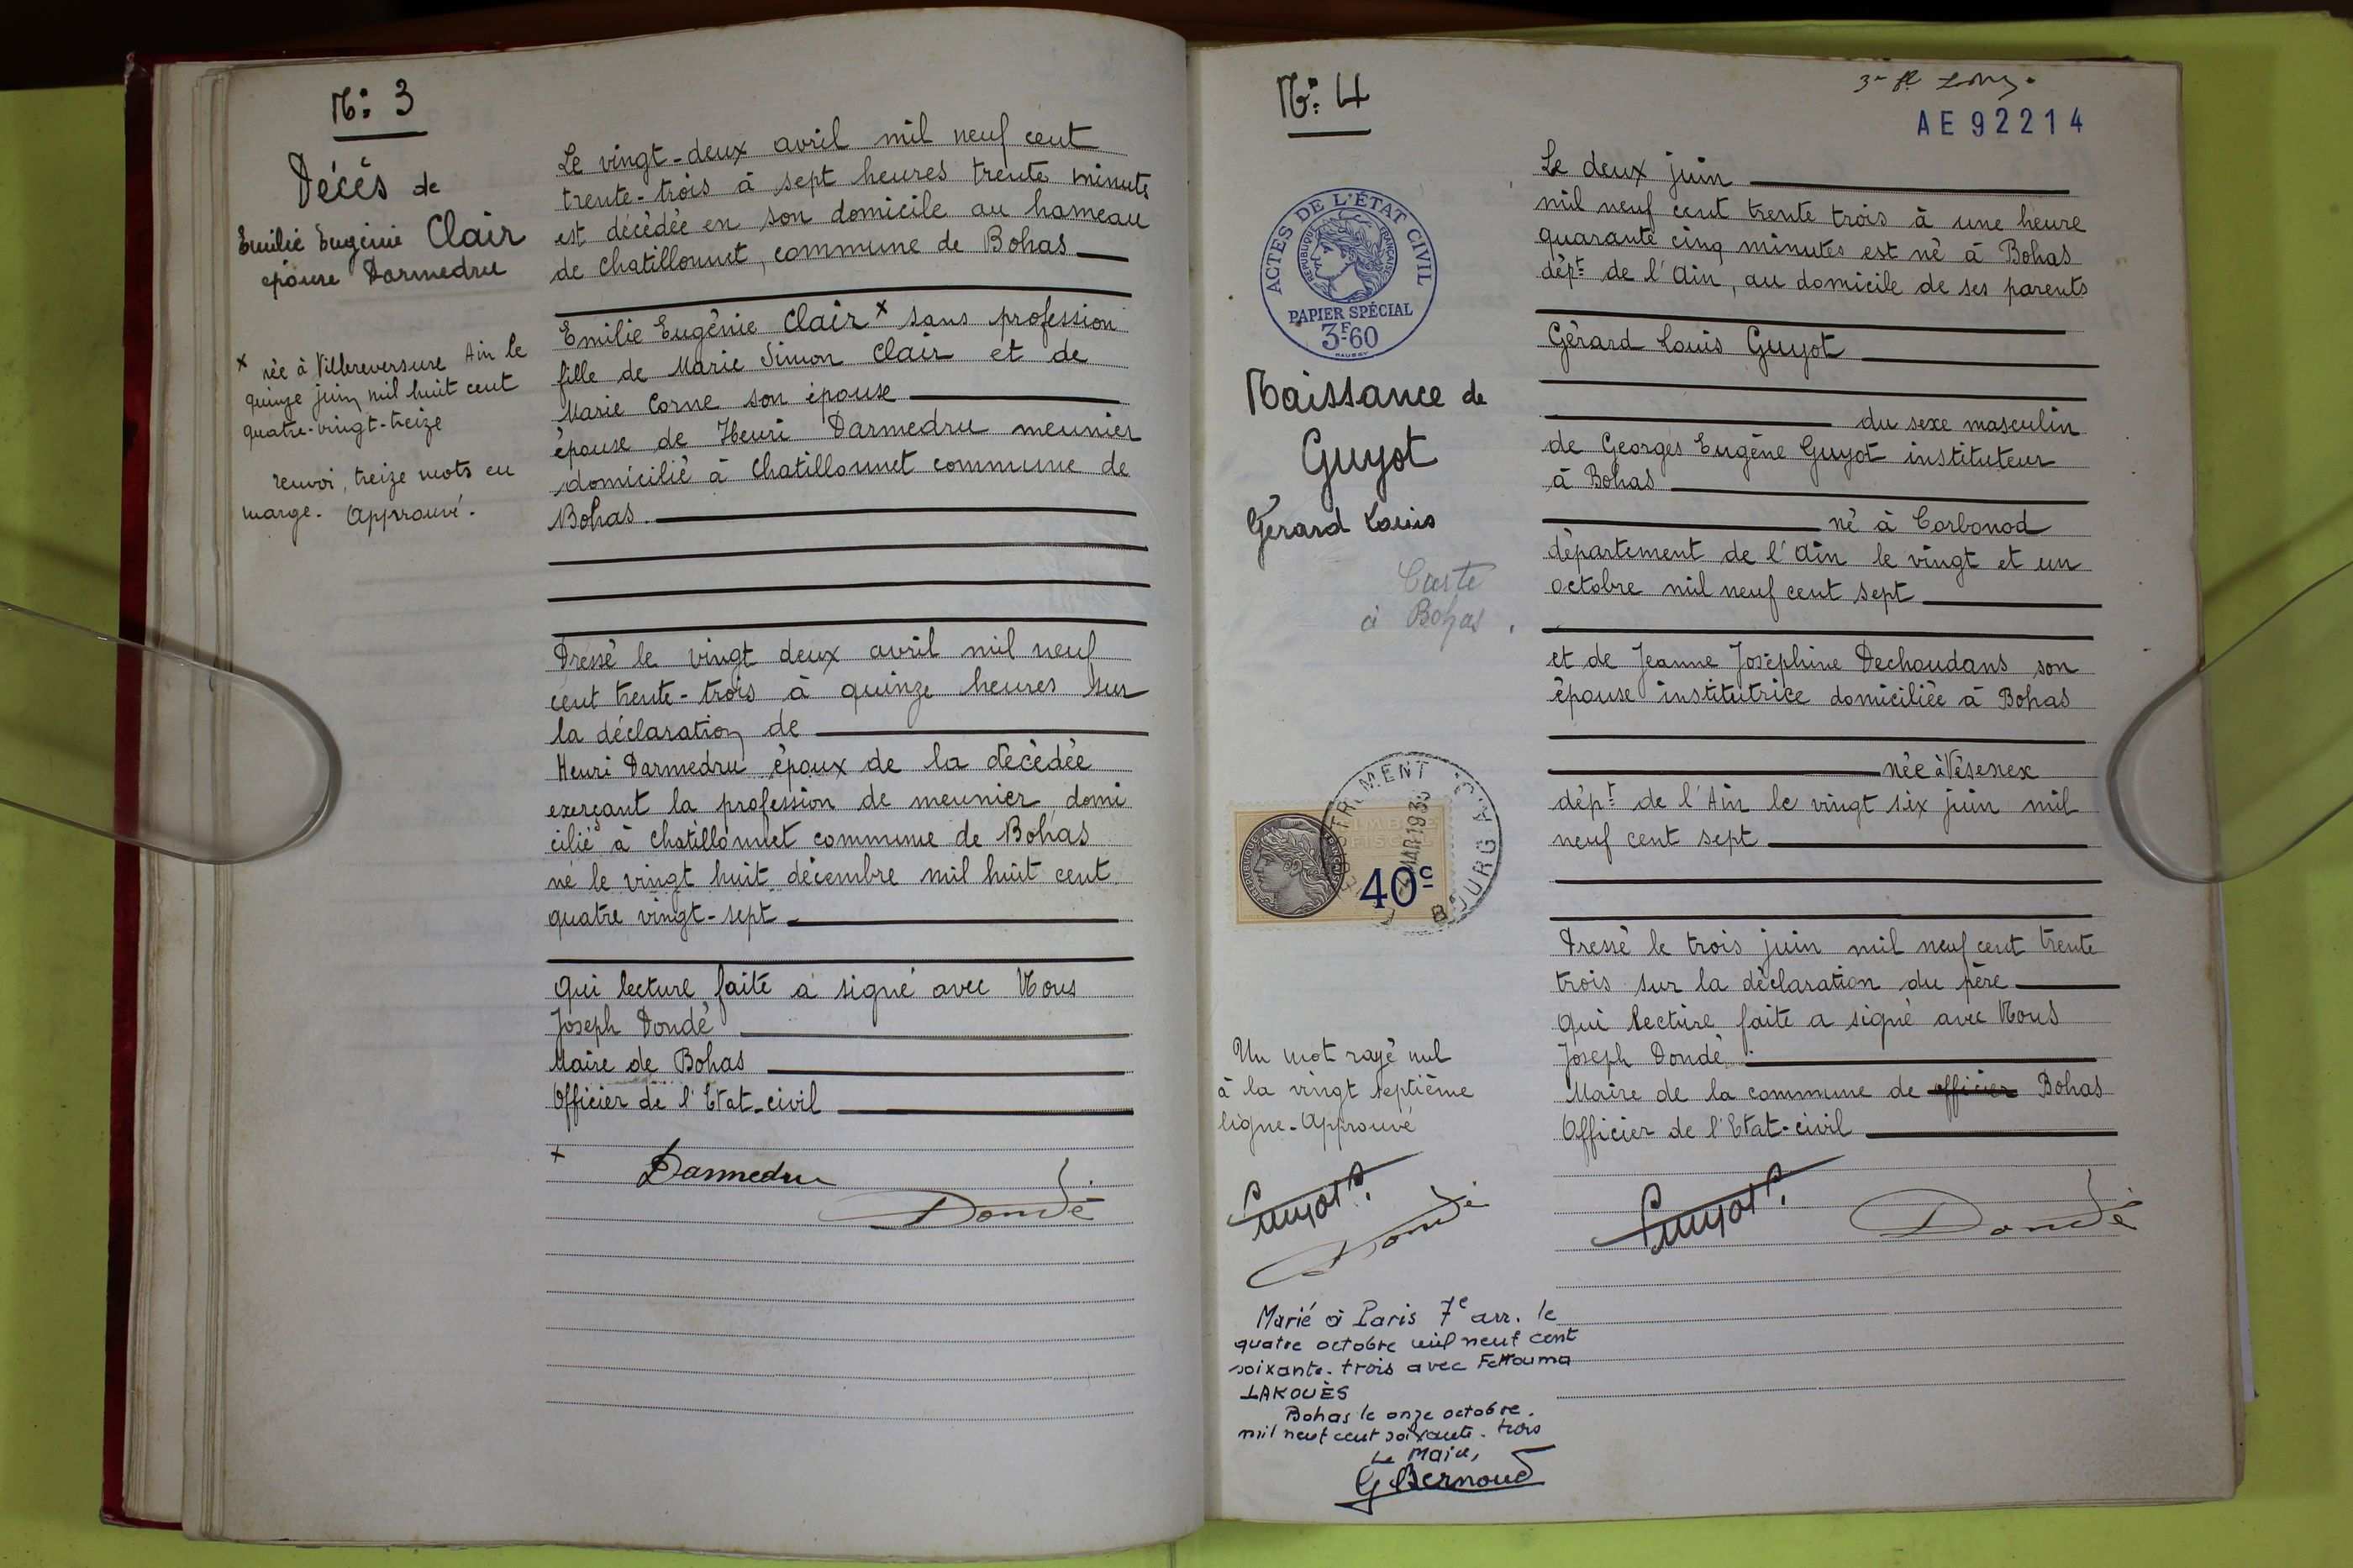 N° 3
Décès de
Emilie Eugénie Clair
épouse Darmedru
x née à Villereversure Ain le
quinze juin mil huit cent
quatre-vingt-treize
renvoi, treize mots en
marge. Approuvé.
Le vingt-deux avril mil neuf cent
trente-trois à sept heures trente minutes
est décédée en son domicile au hameau
de Chatillonnet, commune de Bohas
Emilie Eugénie Clair x sans profession
fille de Marie Simon Clair et de
Marie Corne son épouse
épouse de Henri Darmedru meunier
domicilié à Chatillonnet commune de
Bohas.
Dressé le vingt deux avril mil neuf
cent trente-trois à quinze heures sur
la déclaration de
Henri Darmedru époux de la décédée
exerçant la profession de meunier domi
cilié à Chatillonnet commune de Bohas
né le vingt huit décembre mil huit cent
quatre vingt-sept
Qui lecture faite a signé avec Nous
Joseph Dondé
Maire de Bohas
Officier de l'Etat-civil
x Darmedru
Dondé
N° 4
AE 92214
ACTES DE L'ÉTAT CIVIL
RÉPUBLIQUE FRANÇAISE
PAPIER SPÉCIAL
3F60
Naissance de
Guyot
Gérard Louis
Carte
à Bohas.
TIMBRE
FISCAL
40c
BOURG
Un mot rayé nul
à la vingt septième
ligne. Approuvé
Guyot
Dondé
Marié à Paris 7e arr. le
quatre octobre mil neuf cent
soixante-trois avec Fettouma
LAKOUÈS
Bohas le onze octobre.
mil neuf cent soixante-trois
Le Maire,
G Bernoud
Le deux juin
mil neuf cent trente trois à une heure
quarante cinq minutes est né à Bohas
dépt de l'Ain, au domicile de ses parents
Gérard Louis Guyot
du sexe masculin
de Georges Eugène Guyot instituteur
à Bohas
né à Corbonod
département de l'Ain le vingt et un
octobre mil neuf cent sept
et de Jeanne Joséphine Dechoudans son
épouse institutrice domiciliée à Bohas
née à Vésenex
dépt de l'Ain le vingt six juin mil
neuf cent sept
Dressé le trois juin mil neuf cent trente
trois sur la déclaration du père
Qui lecture faite a signé avec Nous
Joseph Dondé
Maire de la commune de officier Bohas
Officier de l'Etat-civil
Guyot
Dondé